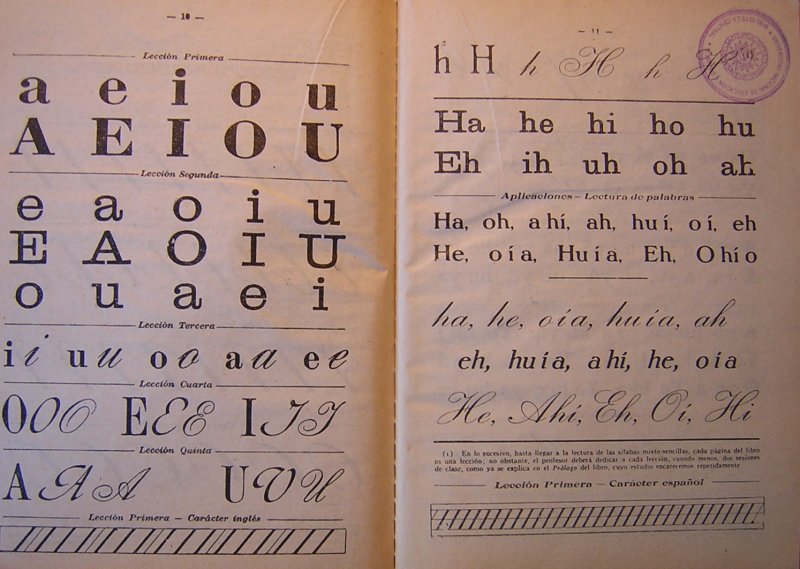 — 10 —
Lección Primera
a e i o u
A E I O U
Lección Segunda
e a o i u
E A O I U
o u a e i
Lección Tercera
i i u u o o a a e e
Lección Cuarta
O O O E E E I I I
Lección Quinta
A A A U U U
Lección Primera — Carácter inglés
— 11 —
h H h H h H
Ha he hi ho hu
Eh ih uh oh ah
Aplicaciones — Lectura de palabras
Ha, oh, ahí, ah, huí, oí, eh
He, oía, Huía, Eh, Ohío
ha, he, oía, huía, ah
eh, huía, ahí, he, oía
He, Ahí, Eh, Oí, Hi
(1) En lo sucesivo, hasta llegar a la lectura de las sílabas mixto-sencillas, cada página del libro
es una lección; no obstante, el profesor deberá dedicar a cada lección, cuando menos, dos sesiones
de clase, como ya se explica en el Prólogo del libro, cuyo estudio encarecemos repetidamente
Lección Primera — Carácter español